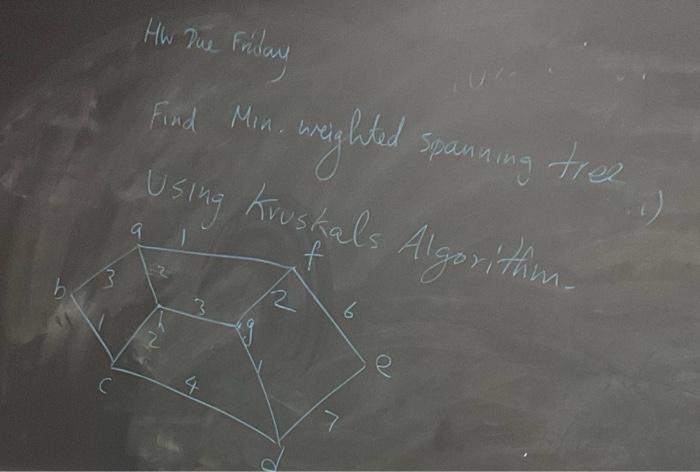 HW Due Friday
Find Min. weighted spanning tree
Using Kruskals Algorithm.
a 1 f
b 3 2
h 3 g 2 6
1 2 1 e
c 4 7
d